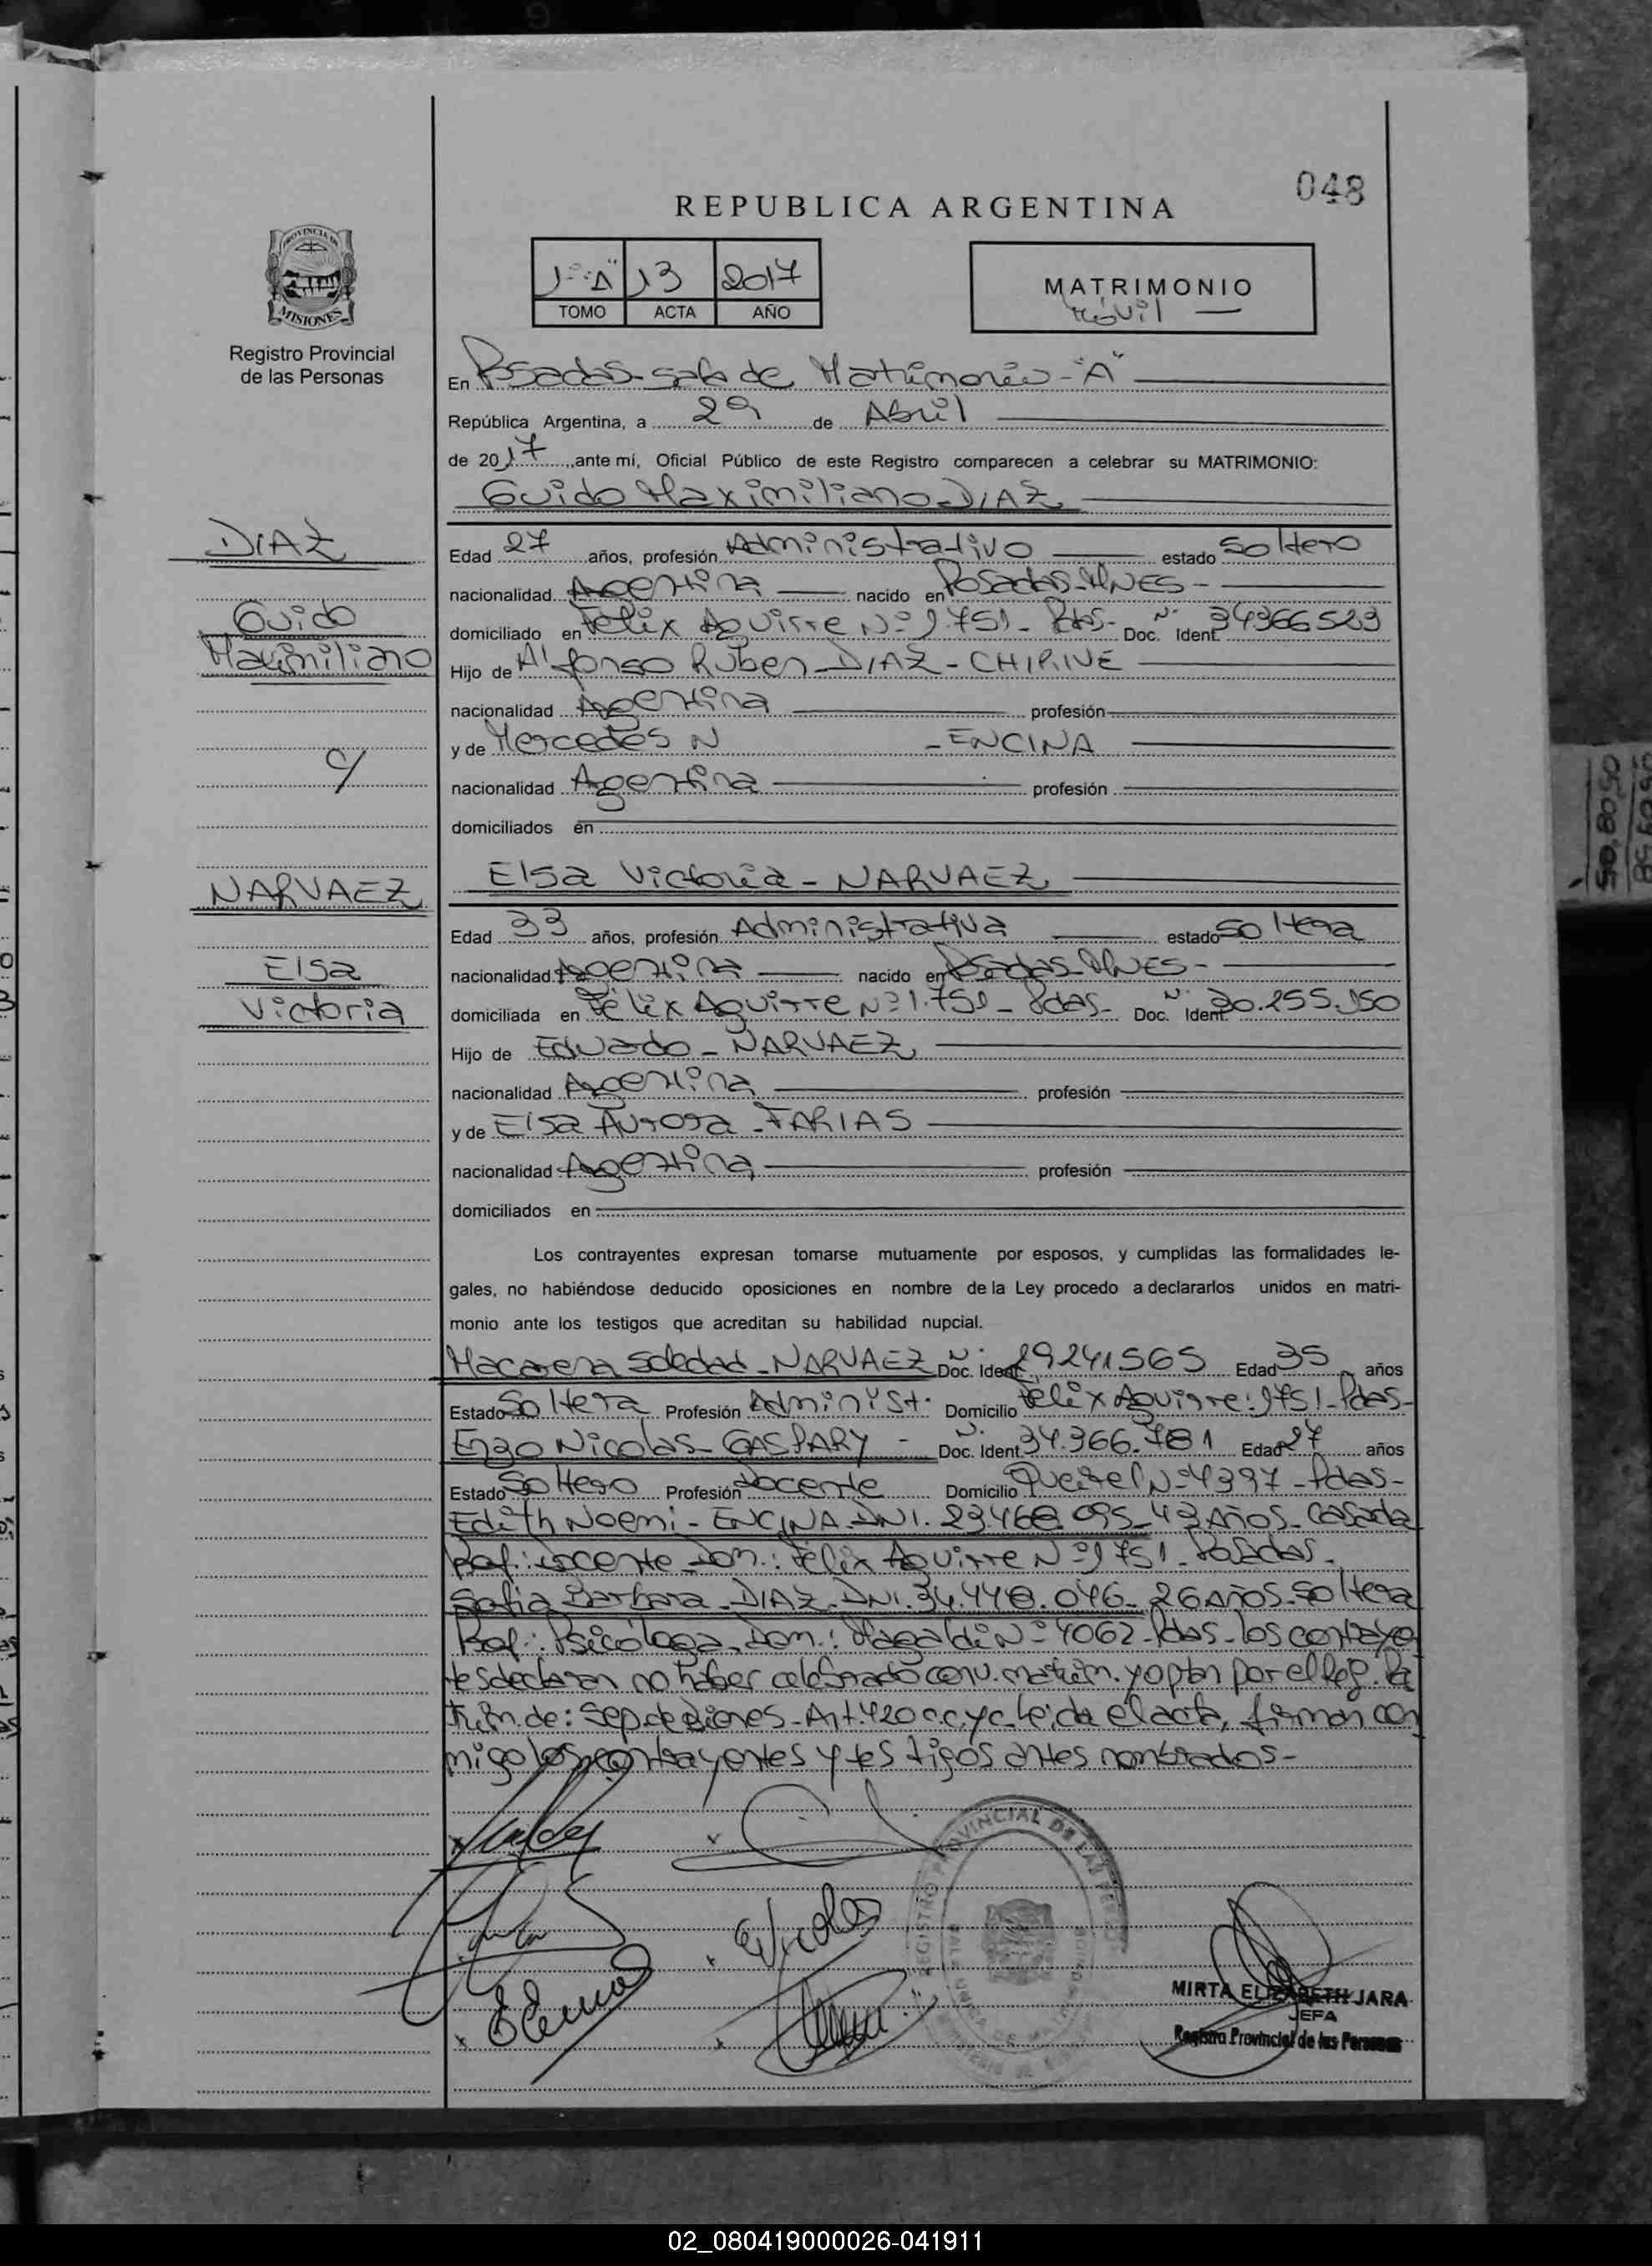 048
REPUBLICA ARGENTINA
PROVINCIA DE
MISIONES
Registro Provincial
de las Personas
1º "A" 13 2017
TOMO ACTA AÑO
MATRIMONIO
Móvil
En Posadas - Sala de Matrimonio - "A"
República Argentina, a 29 de Abril
de 2017, ante mí, Oficial Público de este Registro comparecen a celebrar su MATRIMONIO:
Guido Maximiliano DIAZ
DIAZ
Guido
Maximiliano
c/
NARVAEZ
Elsa
Victoria
Edad 27 años, profesión Administrativo estado Soltero
nacionalidad Argentina nacido en Posadas - MNES -
domiciliado en Felix Aguirre Nº 1.751 - Pdas - Doc. Ident. Nº 34366523
Hijo de Alfonso Ruben DIAZ - CHIRIVE
nacionalidad Argentina profesión
y de Mercedes N - ENCINA
nacionalidad Argentina profesión
domiciliados en
Elsa Victoria - NARVAEZ
Edad 33 años, profesión Administrativa estado Soltera
nacionalidad Argentina nacido en Posadas - MNES -
domiciliada en Félix Aguirre Nº 1.751 - Pdas - Doc. Ident. Nº 30.255.150
Hijo de Eduardo - NARVAEZ
nacionalidad Argentina profesión
y de Elsa Aurora - FARIAS
nacionalidad Argentina profesión
domiciliados en
Los contrayentes expresan tomarse mutuamente por esposos, y cumplidas las formalidades le-
gales, no habiéndose deducido oposiciones en nombre de la Ley procedo a declararlos unidos en matri-
monio ante los testigos que acreditan su habilidad nupcial.
Macarena Soledad - NARVAEZ Doc. Ident. Nº 29241.565 Edad 35 años
Estado Soltera Profesión Administ. Domicilio Félix Aguirre: 1751 - Pdas -
Enzo Nicolas - GASPARY - Doc. Ident. Nº 34.366.781 Edad 27 años
Estado Soltero Profesión Docente Domicilio Nº 4397 - Pdas -
Edith Noemi - ENCINA - DNI. 23.468.095 - 43 Años - Casada
Prof.: Docente - Dom.: Félix Aguirre Nº 1751 - Posadas -
Sofia Barbara - DIAZ - DNI. 34.448.046 - 26 Años - Soltera
Prof.: Psicóloga, Dom.: Magaldi Nº 4062 - Pdas - los contrayen
tes declaran no haber celebrado conv. matrim. y optan por el Reg. Pa
trim. de: Sep. de Bienes - Art. 420 c.c.y c - Leída el acta, firman con
migo los contrayentes y testigos antes nombrados -
REGISTRO PROVINCIAL DE LAS
MIRTA ELIZABETH JARA
JEFA
Registro Provincial de las Personas
02_080419000026-041911